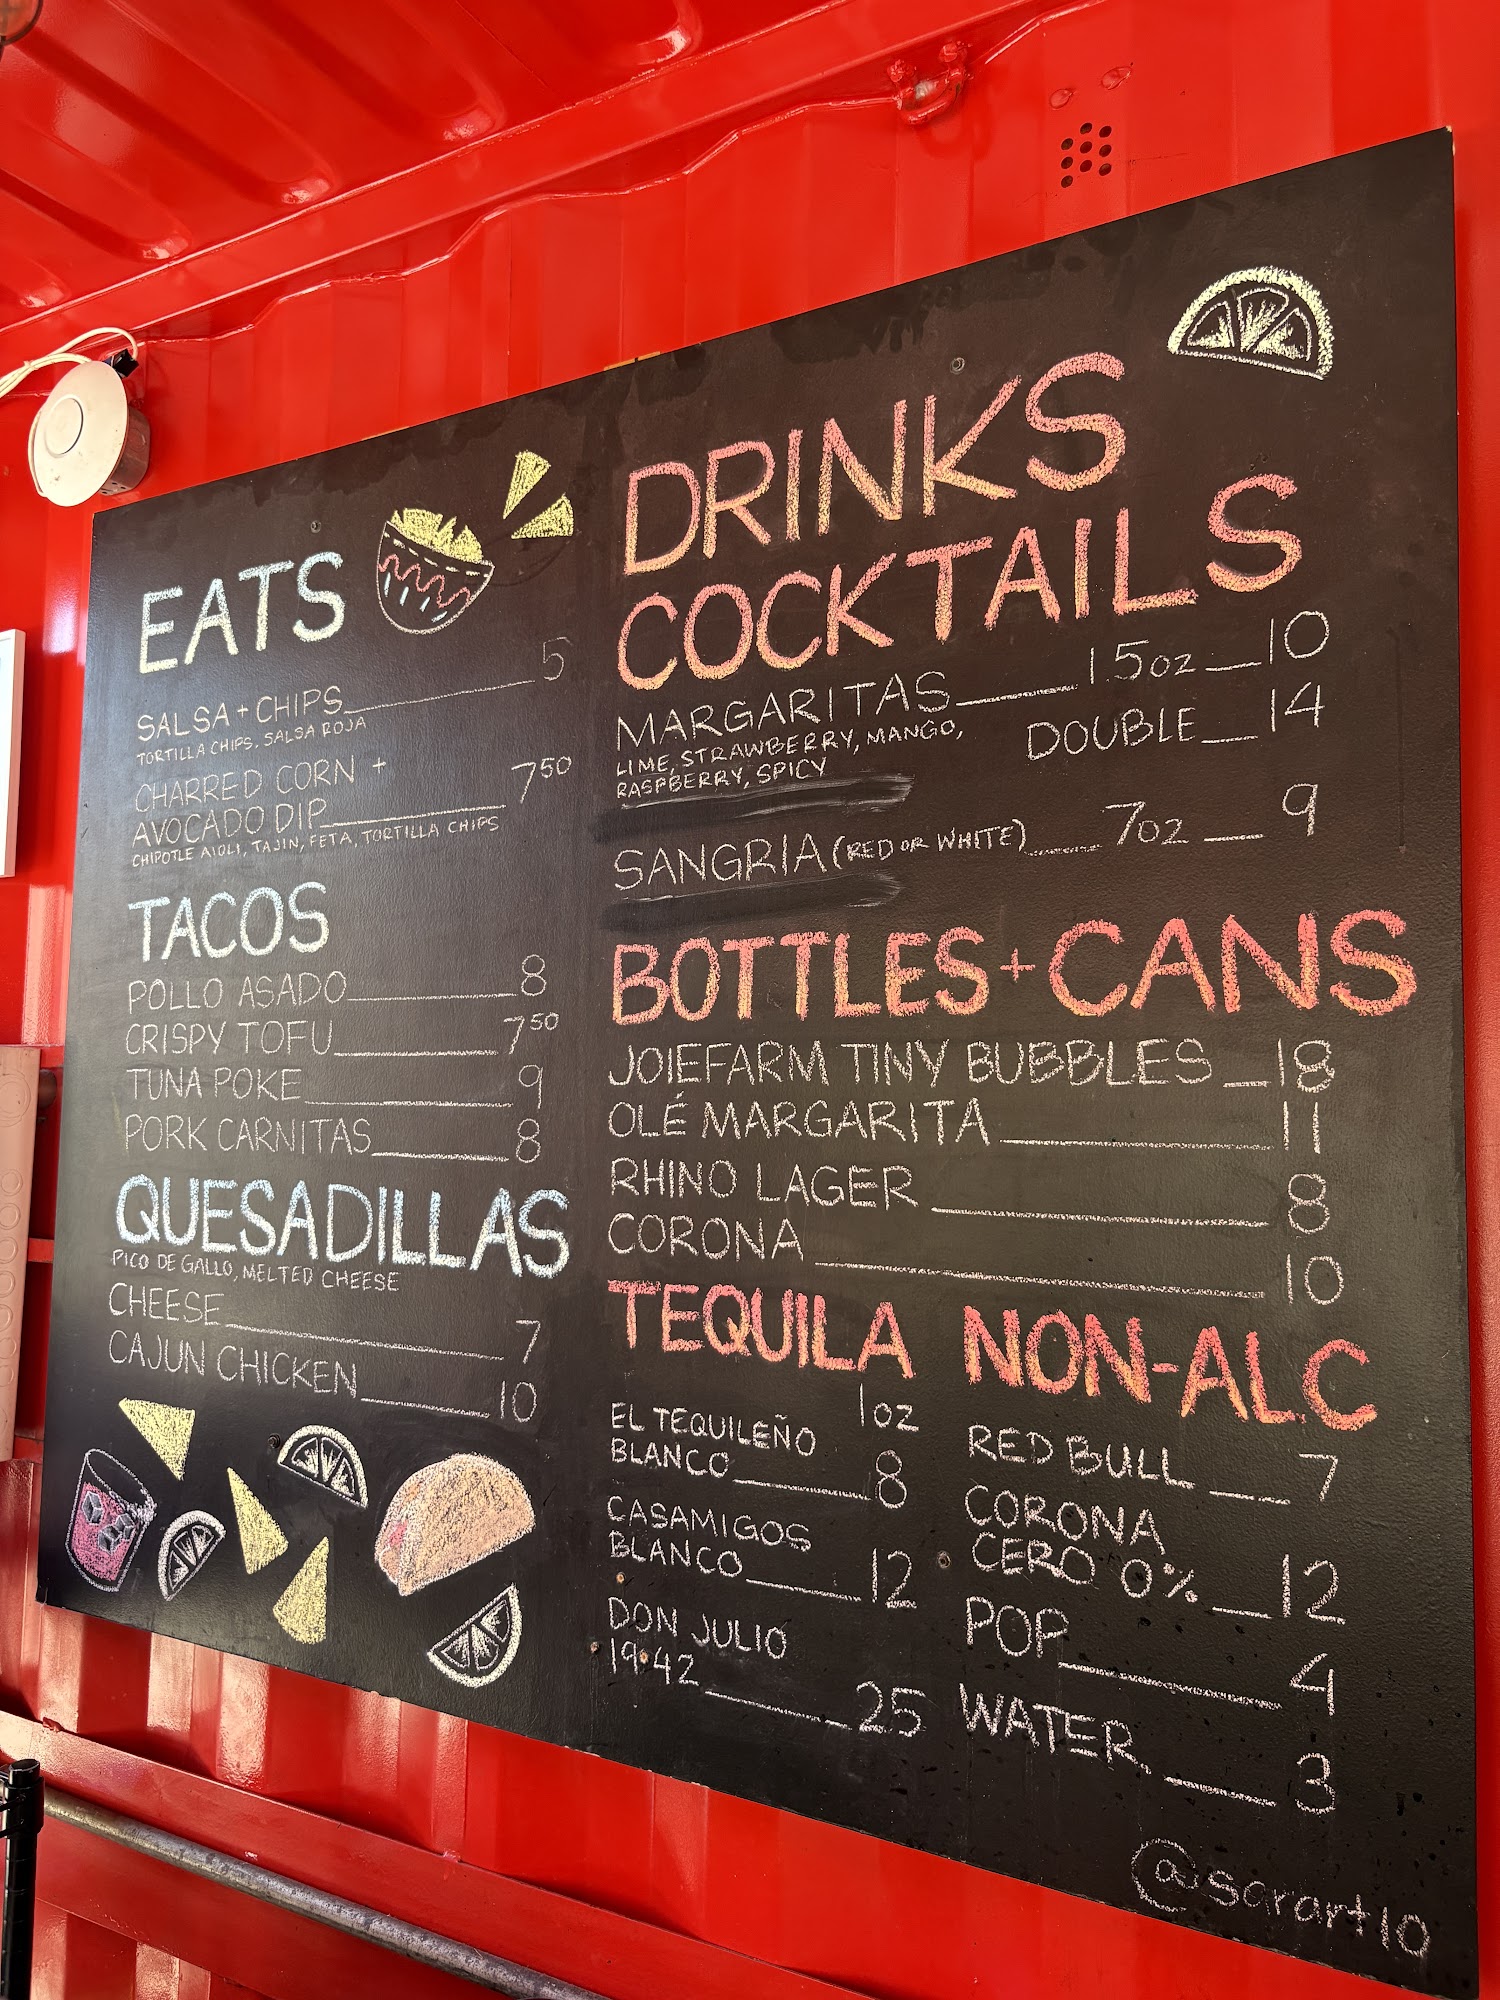 EATS
SALSA + CHIPS 5
TORTILLA CHIPS, SALSA ROJA
CHARRED CORN +
AVOCADO DIP 7 50
CHIPOTLE AIOLI, TAJIN, FETA, TORTILLA CHIPS
TACOS
POLLO ASADO 8
CRISPY TOFU 7 50
TUNA POKE 9
PORK CARNITAS 8
QUESADILLAS
PICO DE GALLO, MELTED CHEESE
CHEESE 7
CAJUN CHICKEN 10
DRINKS
COCKTAILS
MARGARITAS 1.5oz 10
LIME, STRAWBERRY, MANGO,
RASPBERRY, SPICY
DOUBLE 14
SANGRIA (RED OR WHITE) 7oz 9
BOTTLES + CANS
JOIEFARM TINY BUBBLES 18
OLÉ MARGARITA 11
RHINO LAGER 8
CORONA 10
TEQUILA
1oz
EL TEQUILEÑO
BLANCO 8
CASAMIGOS
BLANCO 12
DON JULIO
1942 25
NON-ALC
RED BULL 7
CORONA
CERO 0% 12
POP 4
WATER 3
@sarart10